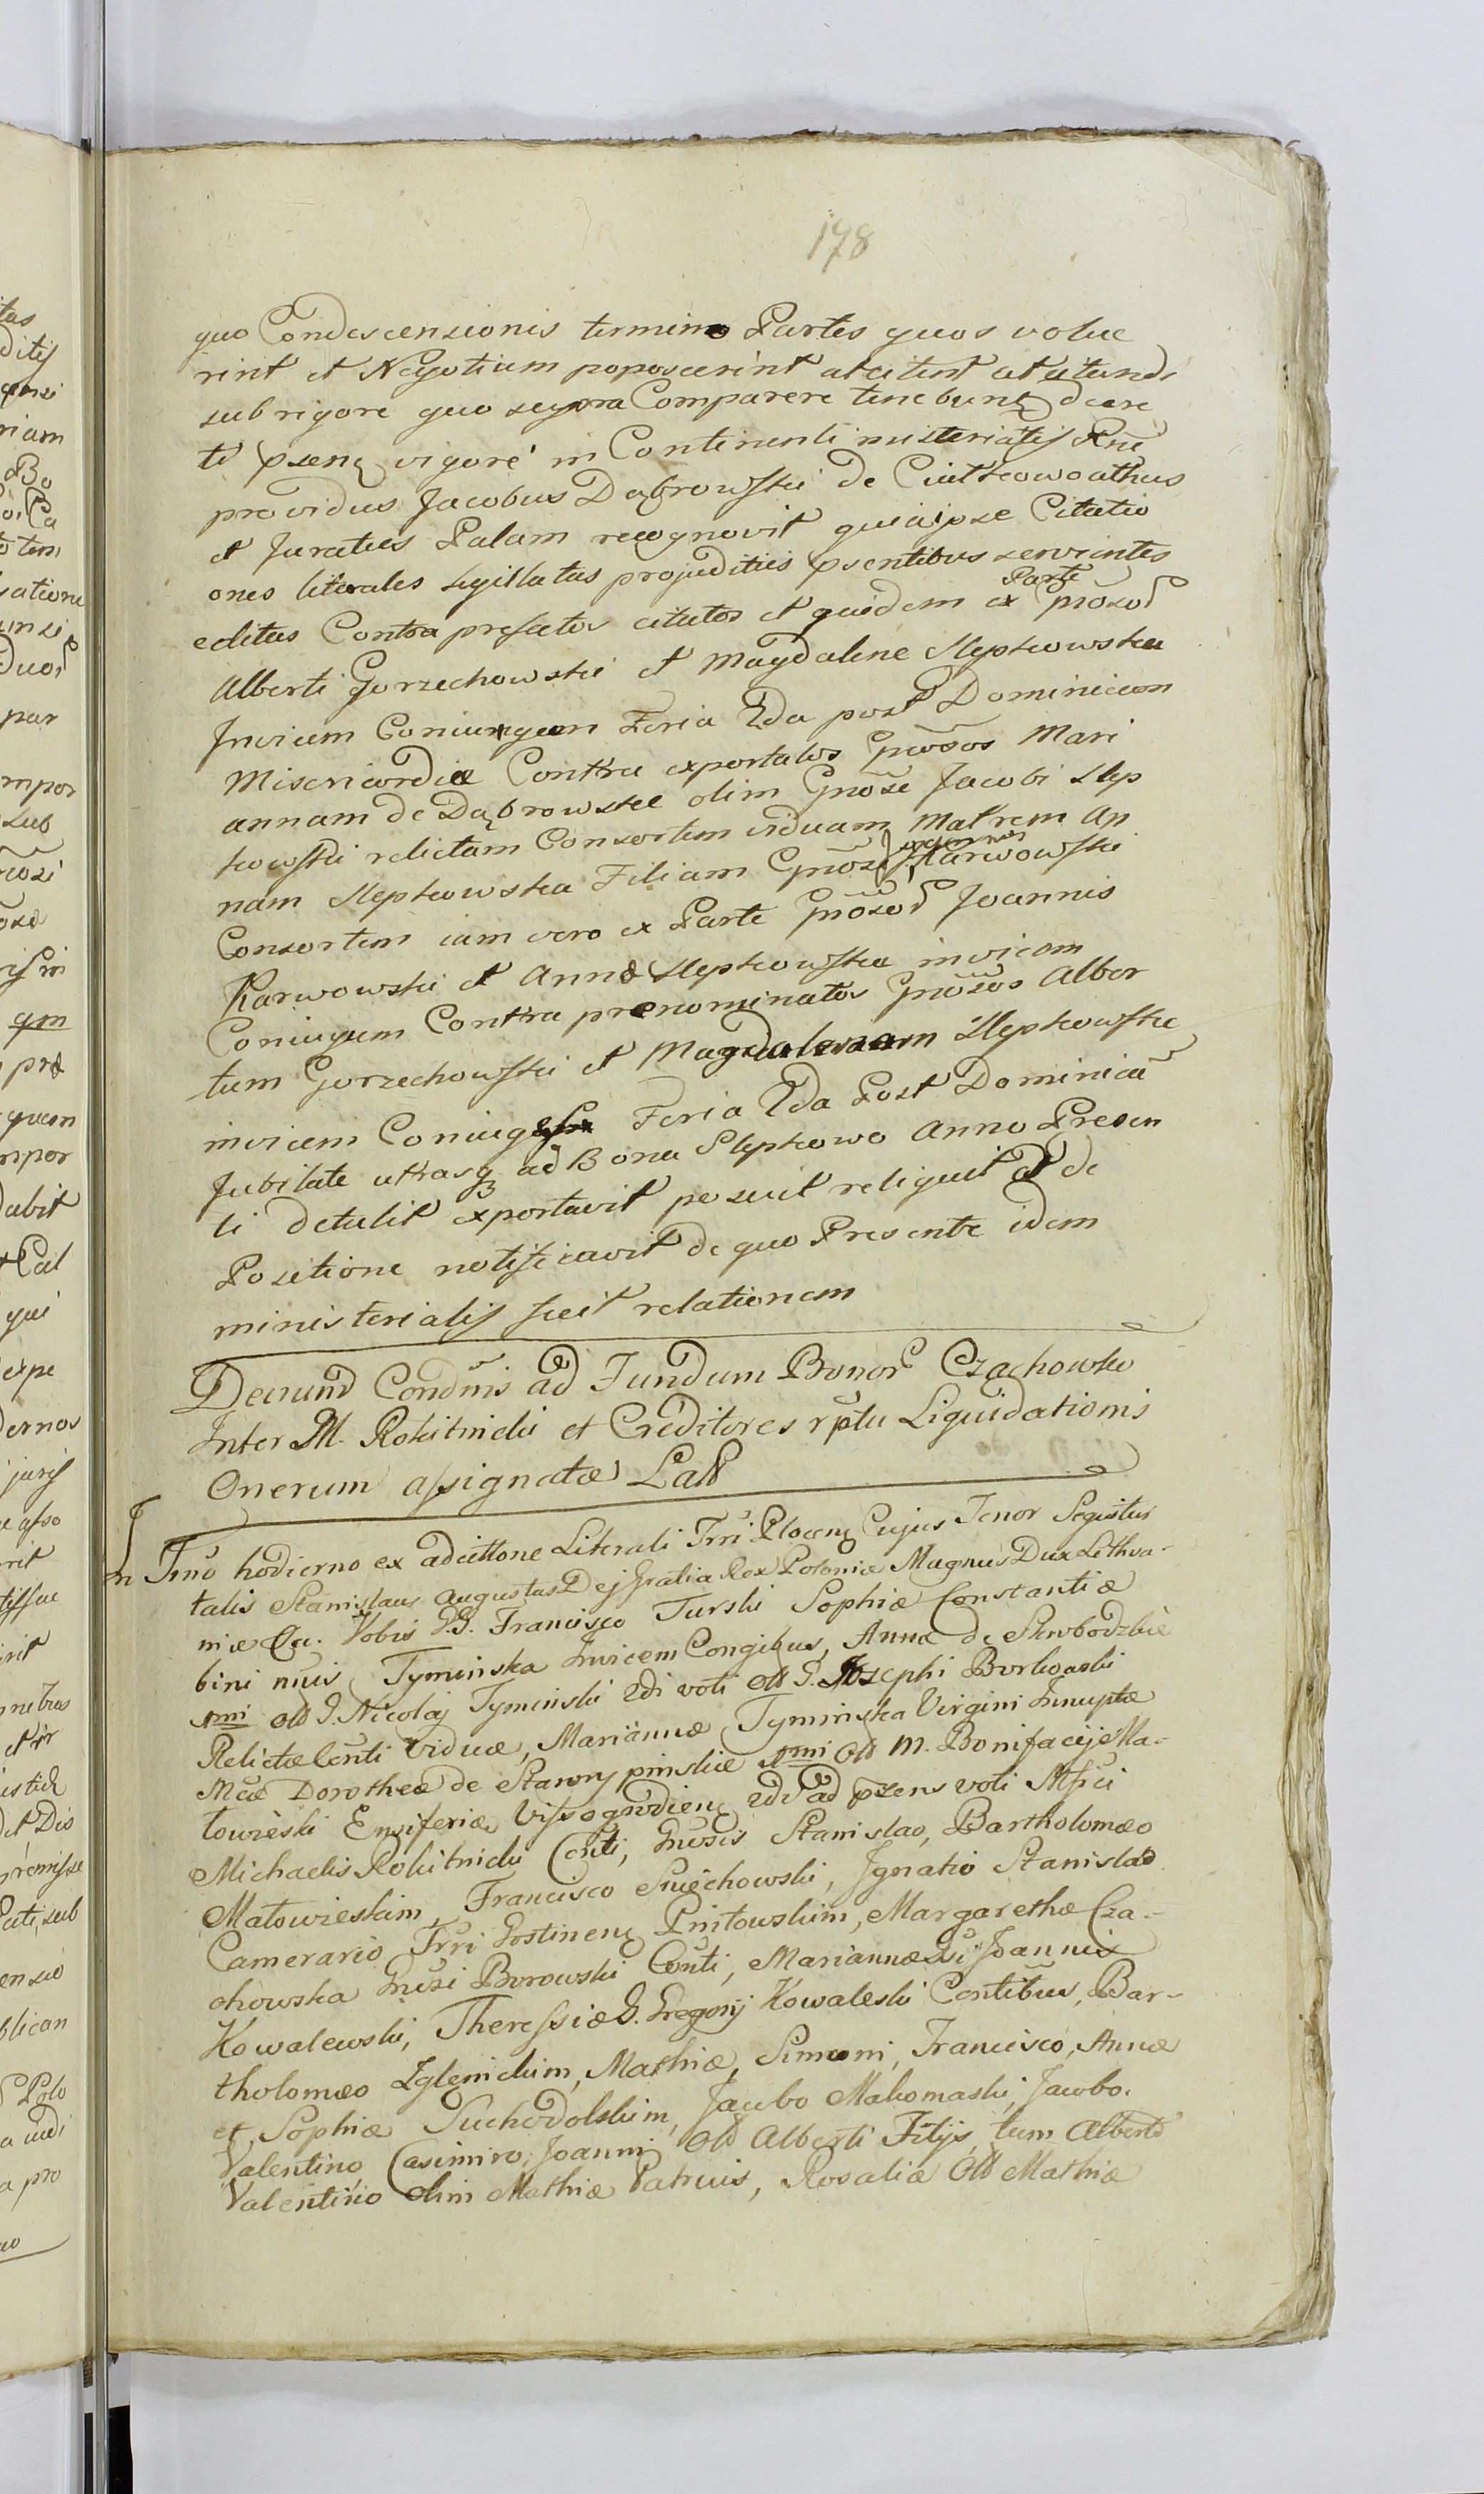 178
quo Condescensionis termino Partes quos volue
rint et Negotium poposcerint atcitent
sub rigore quo supra Comparere tenebunt decre
ti pzens vigore in Continenti
providus Jacobus Dąbrowski de
et Juratus Palam recognovit quia ipse Citatio
ones literales sigillatas projuditiis psentibus servientes
editas Contra prefatos citatos et quidem ex Parte Gnosor
Alberti Gorzechowski et Magdalene Slepkowska
Invicem Coniugum Feria 2da post Dominicam
Misericordiæ Contra exportatos Gnosos Mari
annam de Dąbrowskie olim Gnosi Jacobi Slep
kowski relictam Consortem viduam Matrem An
nam Slepkowska Filiam Gnosi Karwowski
Consortem iam vero ex Parte Gnosor Joannis
Karwowski et Annæ Slepkowska invicem
Coniugum Contra prenominatos Gnosos Alber
tum Gorzechowski et Magdalenam Slepkowska
invicem Coniuges Feria 2da Post Dominicã
Jubilate utrasq ad Bona Slepkowo Anno Presen
ti detulit exportavit posuit reliquit et de
Positione notificavit de quo Presente idem
ministerialis fecit relationem
Decrund Condnis ad Fundum Bonor Czachowko
Inter M. Rokitnicki et Creditores rptu Liquidationis
Onerum assignatæ Lat
In Trno hodierno ex adcittone Literali Trri Plocens Cujus Tenor Sequitur
talis Stanislaus Augustus Dej Gratia Rex Poloniæ Magnus Dux Lithva-
niæ &a. Vobis GG. Francisco Turski Sophiæ Constantiæ
bini nuis Tyminska Invicem Congibus, Annæ de Skrobodzkie
1mi Old G. Nicolaj Tyminski 2di voti Old G. Josephi Borkowski
Relictæ Conti Viduæ, Mariannæ Tyminska Virgini Innuptæ
Mcæ Dorotheæ de Starorypinskie 1mi Old M. Bonifacij Ma-
towieski Ensiferiæ Vissogrodiens 2di ad pzens voti Mfici
Michaelis Rokitnicki Conti, Gnosis Stanislao, Bartholomæo
Matowieskim, Francisco Smiechowski, Ignatio Stanislao
Camerario Trri Gostinens Pnitowskim, Margarethæ Cza-
chowska Gnosi Borowski Conti, Mariannæ Gsi Joannis
Kowalewski, Theressiæ G. Gregorij Kowaleski Contibus, Bar-
tholomæo Zglenickim, Mathiæ, Simeoni, Francisco, Annæ
et Sophiæ Suchodolskim, Jacobo Makomaski, Jacobo.
Valentino, Casimiro, Joanni Old Alberti Filijs, tum Alberto
Valentino olim Mathiæ Patruis, Rosaliæ Old Mathiæ